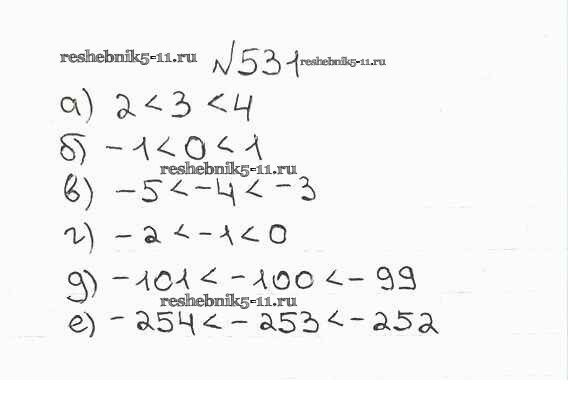 reshebnik5-11.ru №531 reshebnik5-11.ru
а) 2 < 3 < 4
б) -1 < 0 < 1
reshebnik5-11.ru
в) -5 < -4 < -3
г) -2 < -1 < 0
д) -101 < -100 < -99
reshebnik5-11.ru
е) -254 < -253 < -252